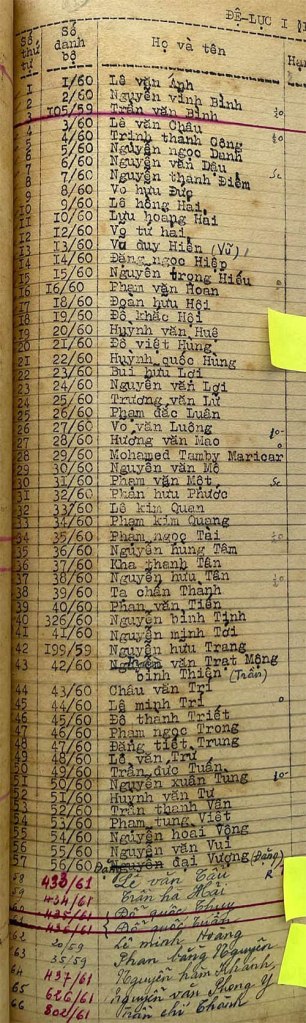 ĐỆ-LỤC I
Số thứ tự Số danh bộ Họ và tên
1 1/60 Lê văn Ánh
2 2/60 Nguyễn vĩnh Bình
105/59 Trần văn Bình
3/60 Lê văn Châu
4/60 Trịnh thành Công
5/60 Nguyễn ngọc Danh
6/60 Nguyễn văn Dậu
7/60 Nguyễn thanh Điềm
8/60 Võ hữu Đức
9/60 Lê hồng Hải
10/60 Lưu hoàng Hải
12/60 Võ tư hải
13/60 Vũ duy Hiền (Vũ)
14/60 Đặng ngọc Hiệp
15/60 Nguyễn trọng Hiếu
16/60 Phạm văn Hoan
18/60 Đoàn hữu Hội
19/60 Đỗ khắc Hội
20/60 Huỳnh văn Huê
21/60 Đỗ việt Hùng
22/60 Huỳnh quốc Hùng
23/60 Bùi hữu Lợi
24/60 Nguyễn văn Lợi
25/60 Trương văn Lữ
26/60 Phạm đắc Luân
27/60 Võ văn Luông
28/60 Hương văn Mac
29/60 Mohamed Tamby Maricar
30/60 Nguyễn văn Mô
31/60 Phạm văn Một
32/60 Phan hữu Phước
33/60 Lê kim Quan
34/60 Phạm kim Quang
35/60 Phạm ngọc Tài
36/60 Nguyễn hùng Tâm
36 37/60 Kha thanh Tân
37 38/60 Nguyễn hữu Tân
38 39/60 Tạ chấn Thành
39 40/60 Phan văn Tiến
40 326/60 Nguyễn bình Tịnh
41 41/60 Nguyễn minh Tới
42 199/59 Nguyễn hữu Trang
43 42/60 văn Trạt Mộng
bình Thiên (Trần)
44 43/60 Châu văn Trí
44/60 Lê minh Trí
45/60 Đỗ thành Triết
46/60 Phạm ngọc Trong
47/60 Đặng tiết Trung
48/60 Lê văn Trừ
49/60 Trần đức Tuấn
50/60 Nguyễn xuân Tùng
51/60 Huỳnh văn Tư
52/60 Trần thanh Vân
53/60 Phạm tung Việt
54/60 Nguyễn hoài Vọng
55/60 Nguyễn văn Vui
57 56/60 Đặng đại Vượng (Đặng)
433/61 Lê văn Cầu
59 434/61 Trần hà Hải
435/61 Đỗ quốc Thụy
436/61 Đỗ quốc Tuấn
62 20/59 Lê minh Hoàng
63 35/59 Phan bằng Nguyên
64 437/61 Nguyễn hàm Khánh
65 626/61 Nguyễn văn Phong Y
66 802/61 Trần chí Thành